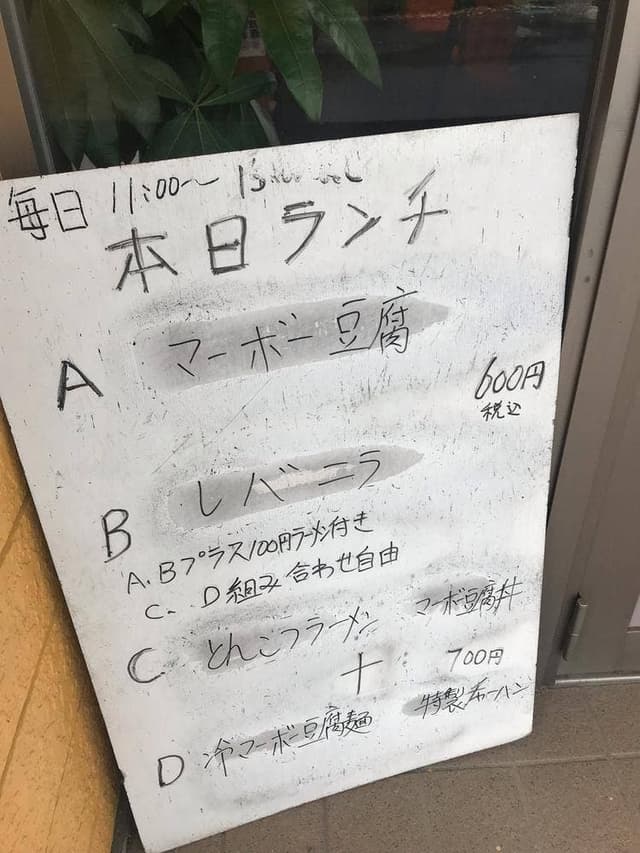 毎日 11:00〜
本日ランチ
A マーボー豆腐
600円
税込
B レバニラ
A.Bプラス100円ラーメン付き
C. D組み合わせ自由
C とんこつラーメン マーボ豆腐丼
+ 700円
D 冷マーボー豆腐麺 特製チャーハン